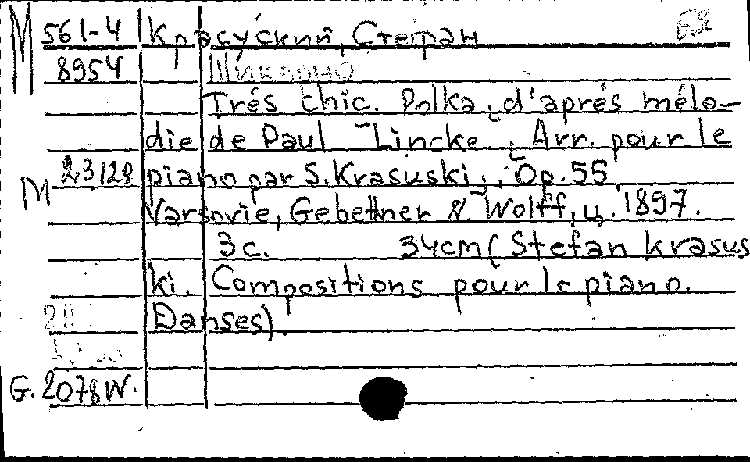 М 561-4 Красу́ский, Стефан
8954
Trés chic. Polka, d'aprés mélo-
die de Paul Lincke. Arr. pour le
М 23128 piano par S. Krasuski. Op. 55
Varsovie, Gebethner & Wolff, ц. 1897.
3 c. 34cm (Stefan Krasus
ki. Compositions pour le piano.
Danses).
G. 2078 W.